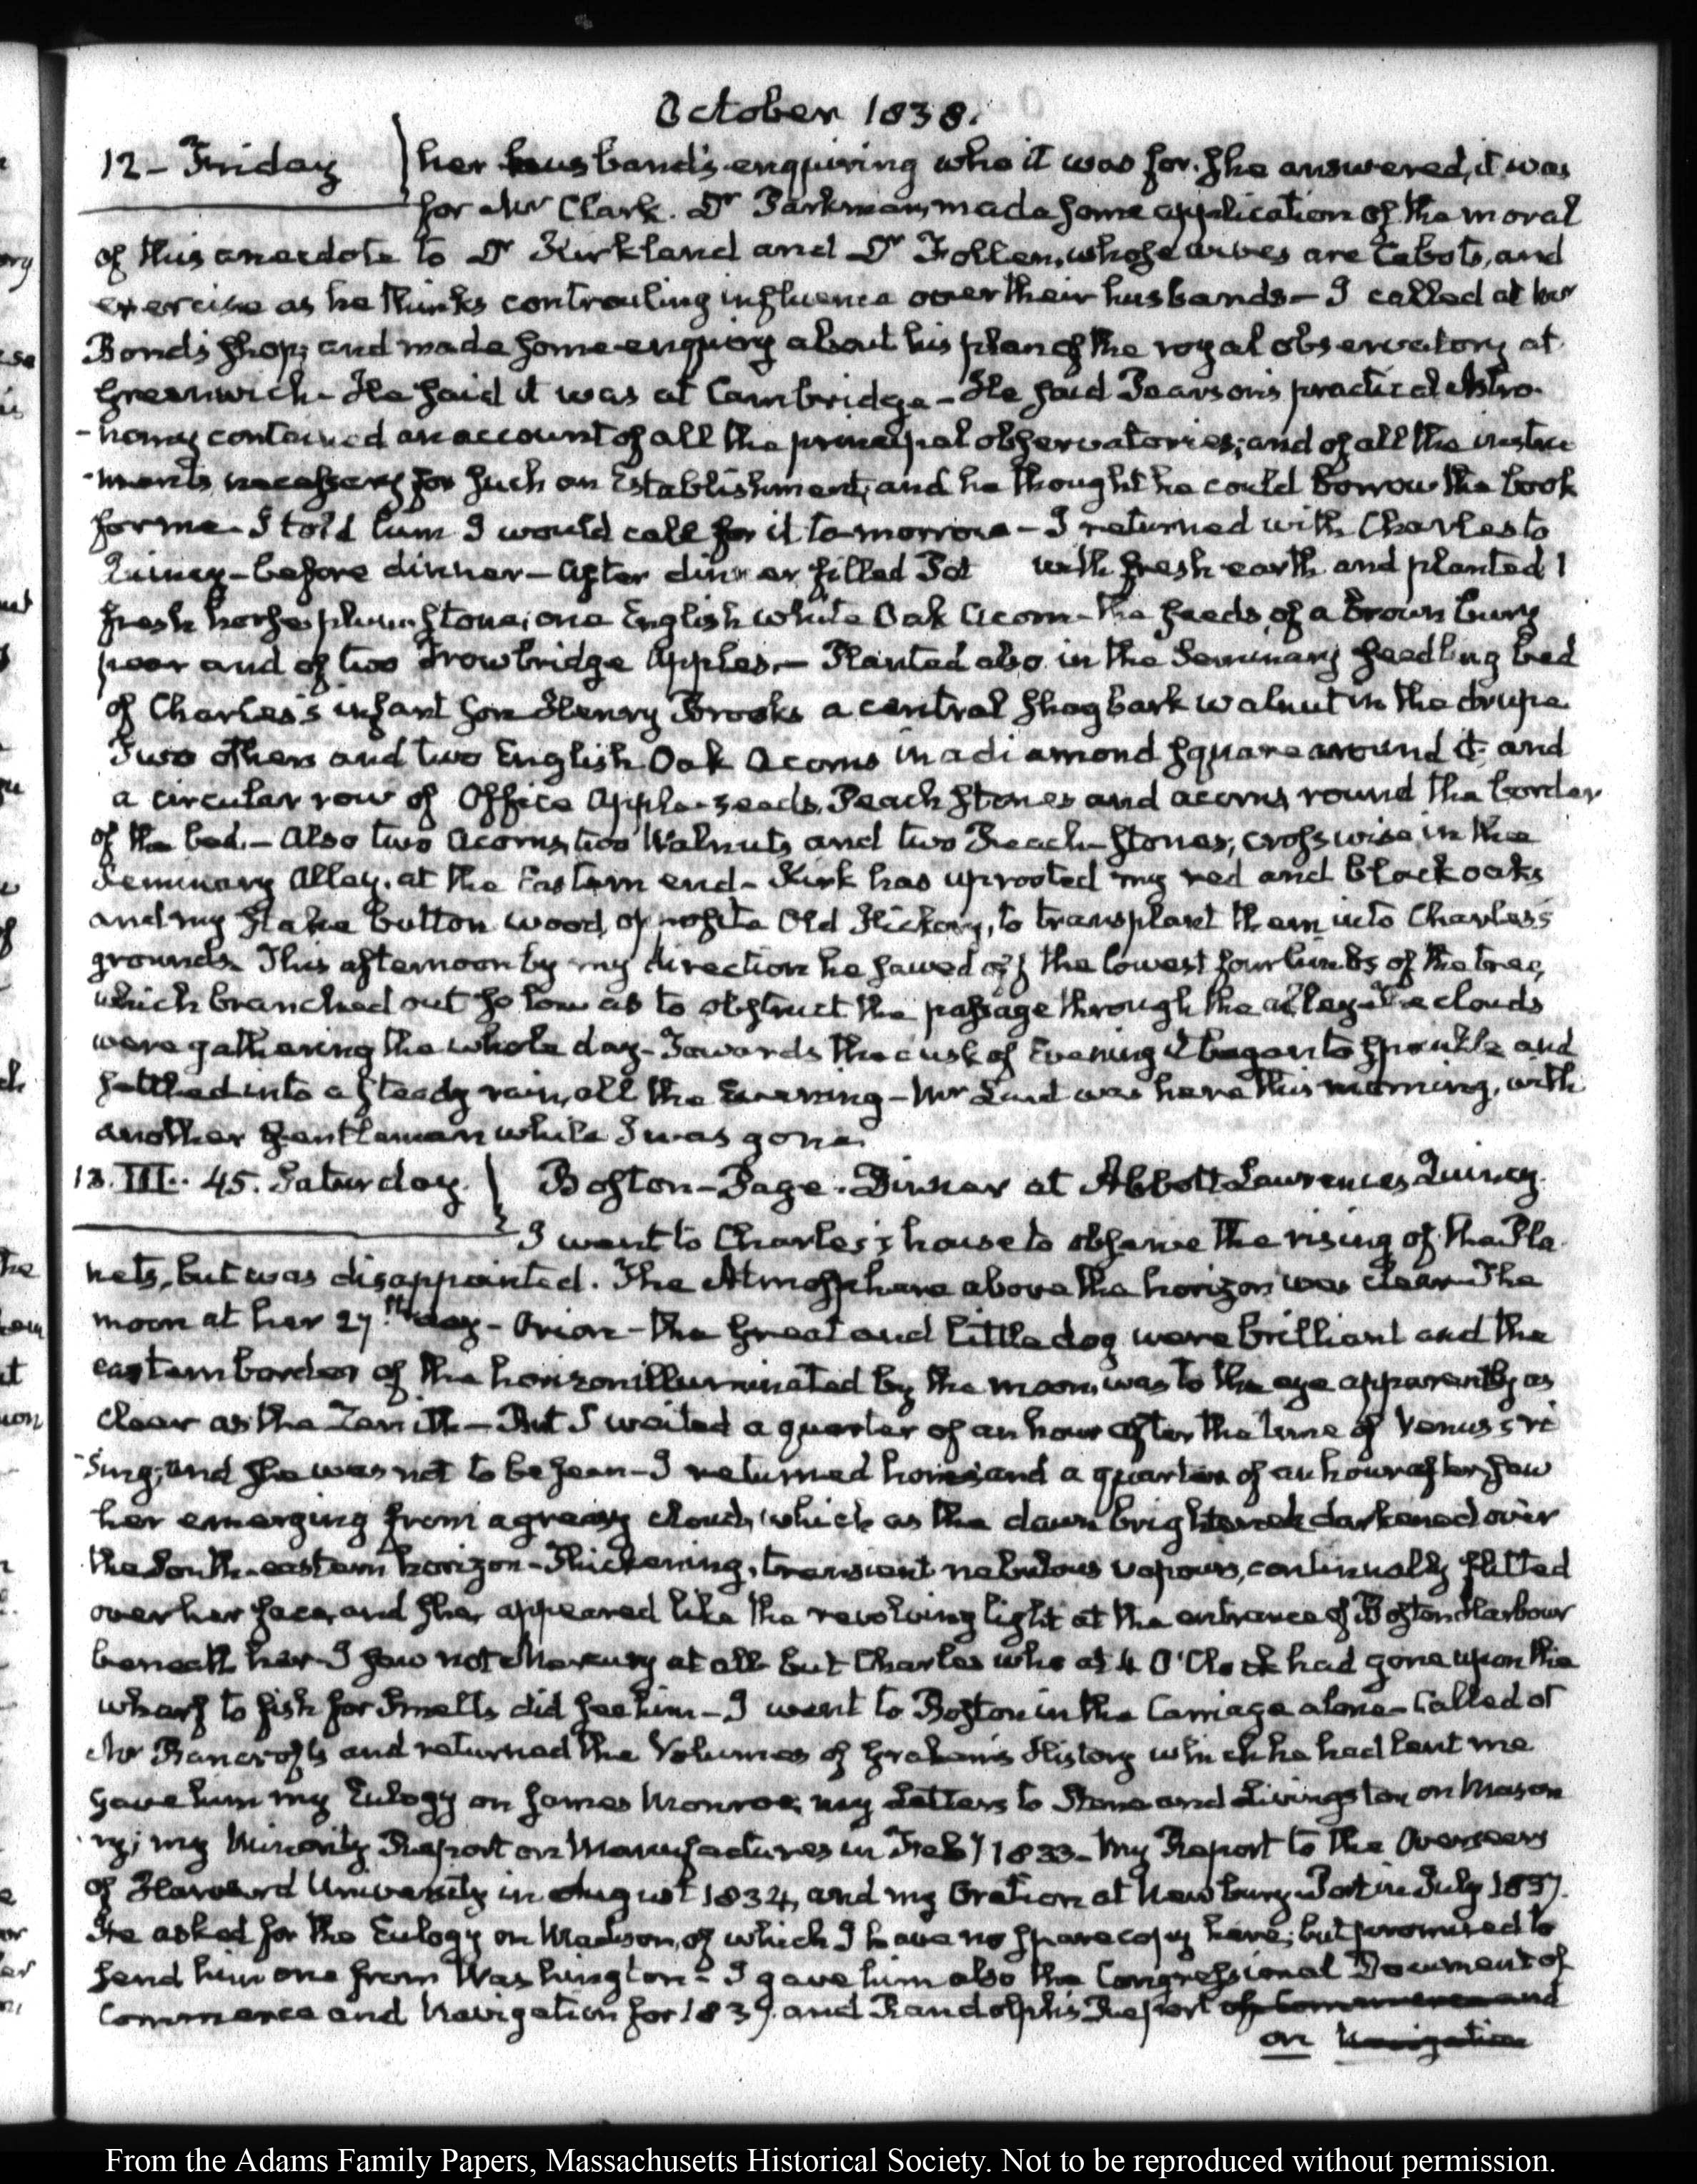 October 1838.
12 - Friday } her husband's enquiring who it was for. She answered, it was
for Mr Clark. Dr Parkman, made some application of the moral
of this anecdote to Dr Kirkland and Dr Follen, whose wives are Cabots, and
exercise as he thinks controuling influence over their husbands - I called at Mr
Bond's shop; and made some enquiry about his plan of the royal observatory at
Greenwich - He said it was at Cambridge - He said Pearson's practical Astro-
-nomy contained an account of all the principal observatories; and of all the instru
-ments necessary for such an Establishment; and he thought he could borrow the book
for me - I told him I would call for it to-morrow - I returned with Charles to
Quincy - before dinner - After dinner filled Pot with fresh earth and planted 1
fresh horse plum stone; one English white Oak Acorn - the seeds of a brown bury
pear and of two Trowbridge Apples. - Planted also in the Seminary seedling bed
of Charles's infant son Henry Brooks a central shagbark walnut in the drupe
Two others and two English Oak Acorns in a diamond square around it; and
a circular row of Office Apple-seeds, Peach stones and acorns round the border
of the bed. - Also two Acorns, two Walnuts and two Peach-stones, crosswise, in the
Seminary Alley, at the Eastern end - Kirk has uprooted my red and black oaks
and my stake button wood, opposite Old Hickory, to transplant them into Charles's
grounds. This afternoon by my direction he sawed off the lowest four limbs of the tree,
which branched out so low as to obstruct the passage through the alley - The clouds
were gathering the whole day - Towards the dusk of Evening it began to sprinkle and
settled into a steady rain, all the Evening - Mr Lunt was here this morning, with
another Gentleman while I was gone.
13. III.. 45. Saturday. } Boston - Page. Dinner at Abbott Lawrence's Quincy.
I went to Charles's house to observe the rising of the Pla-
nets, but was disappointed. The Atmosphere above the horizon was clear - The
moon at her 27th day - Orion - the Great and little dog were brilliant and the
eastern border of the horizon illuminated by the moon, was to the eye apparently as
clear as the Zenith - But I waited a quarter of an hour after the time of Venus's ri
-sing; and she was not to be seen - I returned home; and a quarter of an hour after saw
her emerging from a greasy cloud, which as the dawn brightened darkened over
the South-eastern horizon - Thickening, transient nebulous vapours, continually flitted
over her face, and she appeared like the revolving light at the entrance of Boston Harbour
beneath her - I saw not Mercury at all but Charles who at 4 O'Clock had gone upon the
wharf to fish for Smelts did see him - I went to Boston in the Carriage alone - Called at
Mr Bancroft's and returned the Volumes of Graham's History which he had lent me
Gave him my Eulogy on James Monroe; my Letters to Stone and Livingston on Mason
-ry; my Minority Report on Manufactures in Feby 1833 - My Report to the Overseers
of Harvard University in August 1834, and my Oration at Newbury-Port in July 1837.
He asked for the Eulogy on Madison, of which I have no spare copy here; but promised to
send him one from Washington - I gave him also the Congressional Document of
Commerce and Navigation for 1837. and Randolph's Report of Commerce and
on Navigation
From the Adams Family Papers, Massachusetts Historical Society. Not to be reproduced without permission.